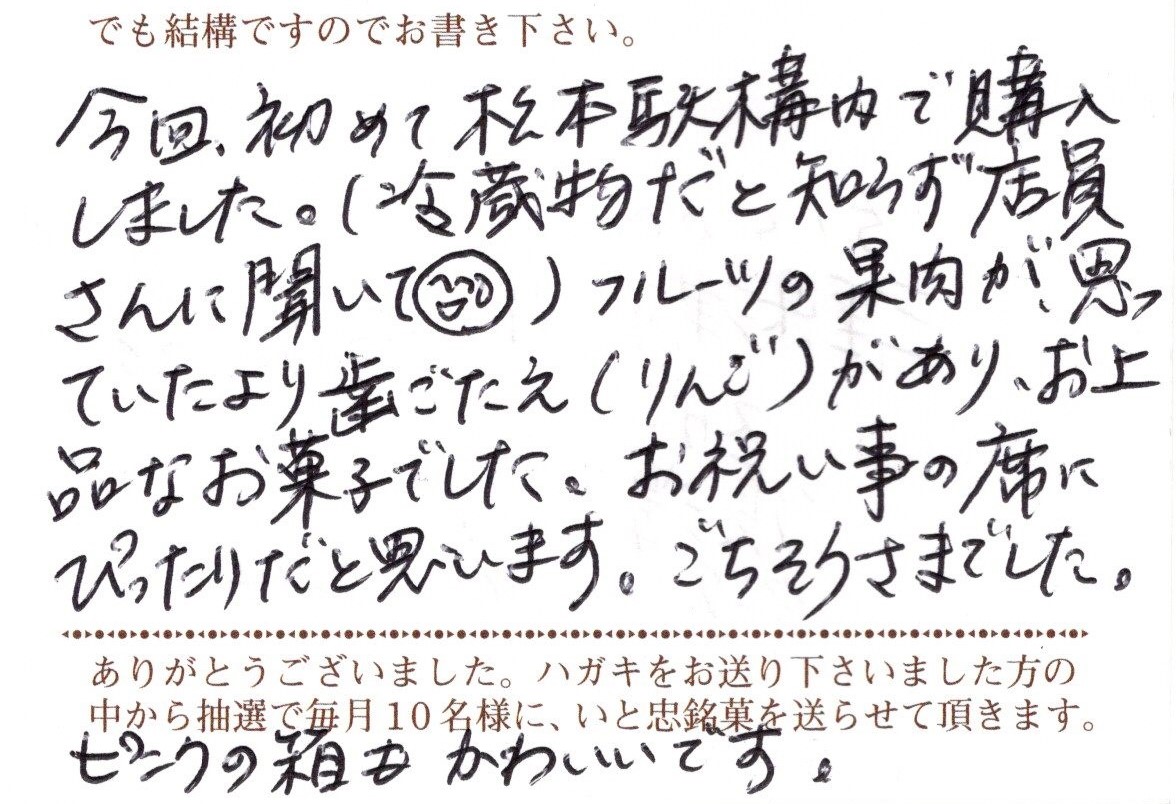 でも結構ですのでお書き下さい。
今回、初めて松本駅構内で購入
しました。(冷蔵物だと知らず店員
さんに聞いて)フルーツの果肉が、思っ
ていたより歯ごたえ(りんご)があり、お上
品なお菓子でした。お祝い事の席に
ぴったりだと思います。ごちそうさまでした。
ありがとうございました。ハガキをお送り下さいました方の
中から抽選で毎月10名様に、いと忠銘菓を送らせて頂きます。
ピンクの箱もかわいいです。